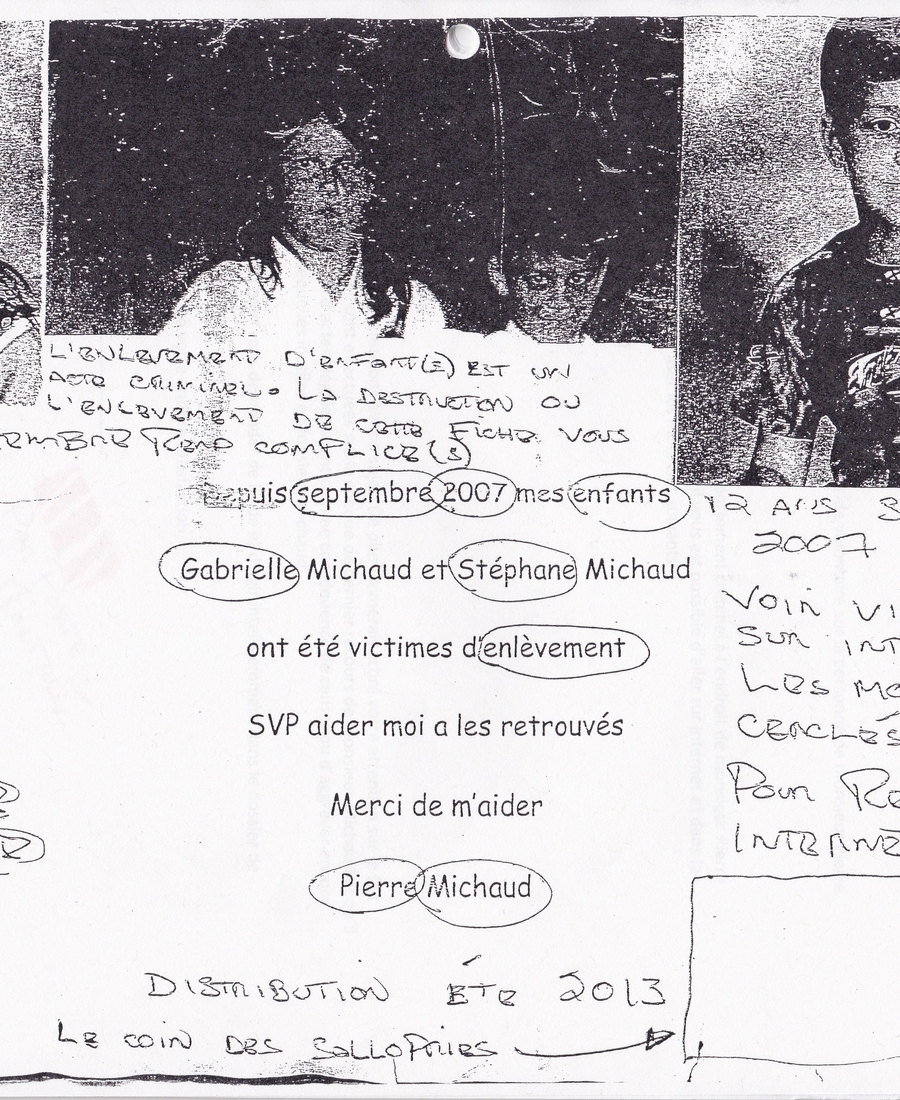 L'ENLEVEMENT D'ENFANT(S) EST UN
ACTE CRIMINEL. LA DESTRUCTION OU
L'ENLEVEMENT DE CETTE FICHE VOUS
REND COMPLICE(S)
Depuis septembre 2007 mes enfants
Gabrielle Michaud et Stéphane Michaud
ont été victimes d'enlèvement
SVP aider moi a les retrouvés
Merci de m'aider
Pierre Michaud
DISTRIBUTION ÉTE 2013
LE COIN DES SALLOPRIES
12 ANS
2007
VOIR VI
SUR INT
LES MO
CERCLÉS
POUR RE
INTERNE